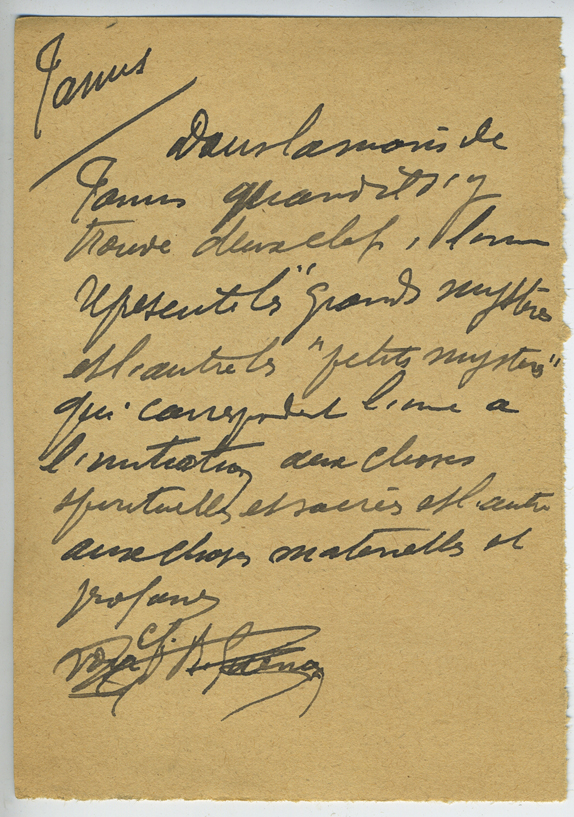 Janus
Dans la main de
Janus quand il s'y
trouve deux clefs, l'une
représente les "grands mystères
et l'autre les "petits mystères"
qui correspondent l'une a
l'initiation aux choses
spirituelles et sacrées et l'autre
aux choses materielles et
profanes
cf.